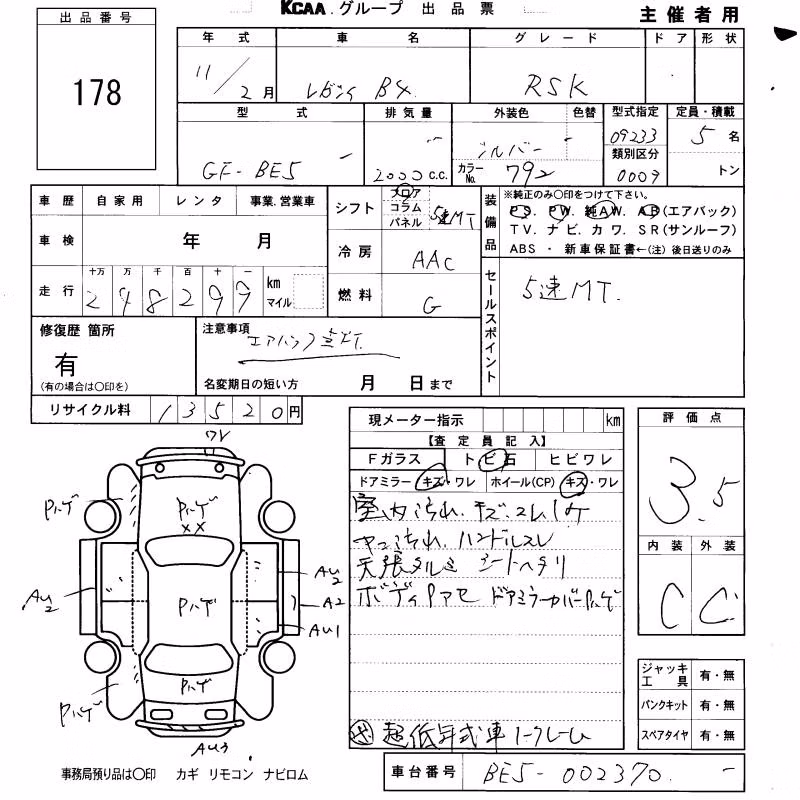 KCAA.グループ 出品票
主催者用
出品番号
178
年式 車名 グレード ドア 形状
11/2月 レガシィ B4 RSK
型式 排気量 外装色 色替 型式指定 定員・積載
GF-BE5 2000 C.C. シルバー カラーNo. 792 09233 5名
類別区分
0009 トン
車歴 自家用 レンタ 事業.営業車
車検 年 月
走行 十万 万 千 百 十 一
248299 km マイル
シフト フロア コラム パネル 5速MT
冷房 AAC
燃料 G
装備品
※純正のみ○印をつけて下さい。
PS. PW. 純AW. AB(エアバック)
TV. ナビ. カワ. SR(サンルーフ)
ABS ・ 新車保証書←(注)後日送りのみ
セールスポイント
5速MT.
修復歴 箇所
有
(有の場合は○印を)
注意事項
エアバック点灯.
名変期日の短い方 月 日まで
リサイクル料 13520円
現メーター指示 km
【査定員記入】
Fガラス トビ石 ヒビワレ
ドアミラー キズ・ワレ ホイール(CP) キズ・ワレ
室内汚れ.キズ.コムハゲ
ヤニ汚れ.ハンドルスレ
天張タルミ シートヘタリ
ボディPアセ ドアミラーカバーPハゲ
超低年式車ノークレーム
評価点
3.5
内装 外装
C C
ジャッキ工具 有・無
パンクキット 有・無
スペアタイヤ 有・無
車台番号 BE5-002370.
ワレ
Pハゲ
Pハゲ
XX
AU2
AU2
Pハゲ
A2
AU1
Pハゲ
Pハゲ
AU3
事務局預り品は○印 カギ リモコン ナビロム